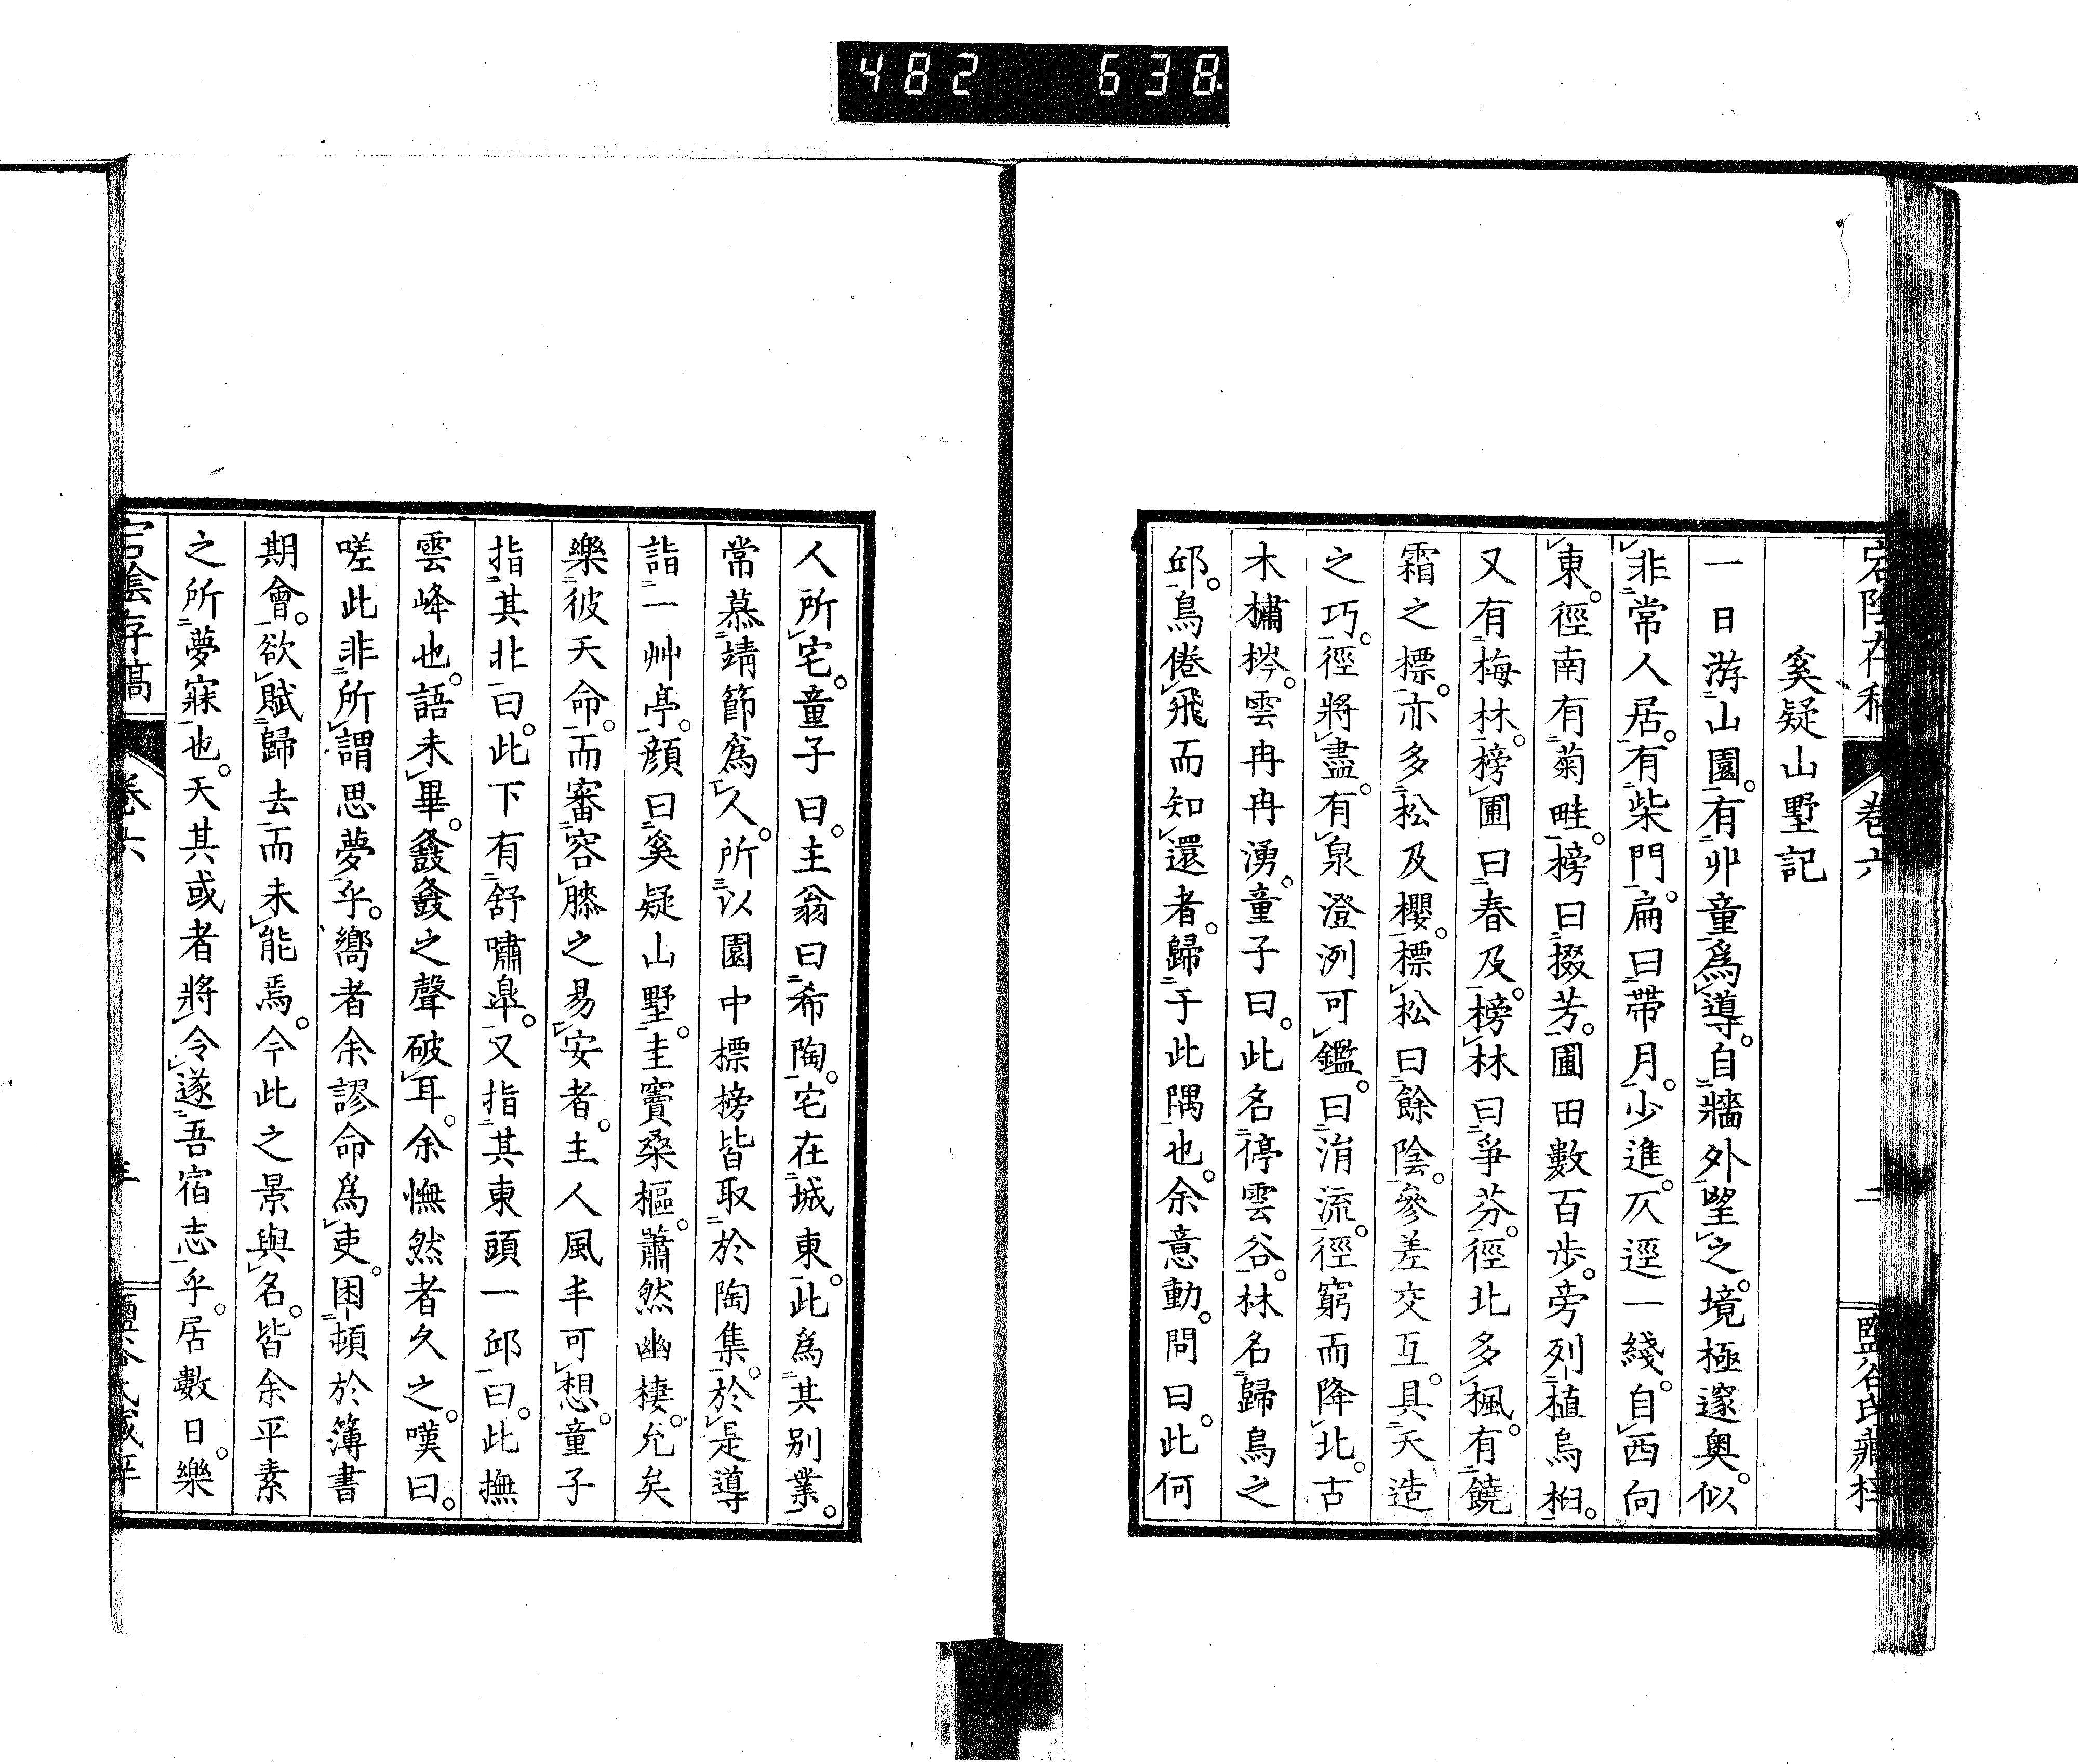 482 638
宕陰存稿 卷六 二 鹽谷氏藏梓
奚疑山墅記
一日游山園。有丱童爲導。自牆外望之。境極邃奧。似
非常人居。有柴門。扁曰帶月。少進。仄逕一綫。自西向
東。徑南有菊畦。榜曰掇芳。圃田數百步。旁列植烏桕。
又有梅林。榜圃曰春及。榜林曰爭芬。徑北多楓。有饒
霜之標。亦多松及櫻。標松曰餘陰。參差交互。具天造
之巧。徑將盡。有泉澄冽可鑑。曰涓流。徑窮而降北。古
木橚槮。雲冉冉湧。童子曰。此名停雲谷。林名歸鳥之
邱。鳥倦飛而知還者。歸于此隅也。余意動。問曰。此何
人所宅。童子曰。主翁曰希陶。宅在城東。此爲其別業。
常慕靖節爲人。所以園中標榜皆取於陶集。於是導
詣一艸亭。顏曰奚疑山墅。圭竇桑樞。蕭然幽棲。允矣
樂彼天命。而審容膝之易安者。主人風丰可想。童子
指其北曰。此下有舒嘯皐。又指其東頭一邱曰。此撫
雲峰也。語未畢。鼕鼕之聲破耳。余憮然者久之。嘆曰。
嗟此非所謂思夢乎。嚮者余謬命爲吏。困頓於簿書
期會。欲賦歸去而未能焉。今此之景與名。皆余平素
之所夢寐也。天其或者將令遂吾宿志乎。居數日。樂
宕陰存稿 卷六 鹽谷氏藏梓